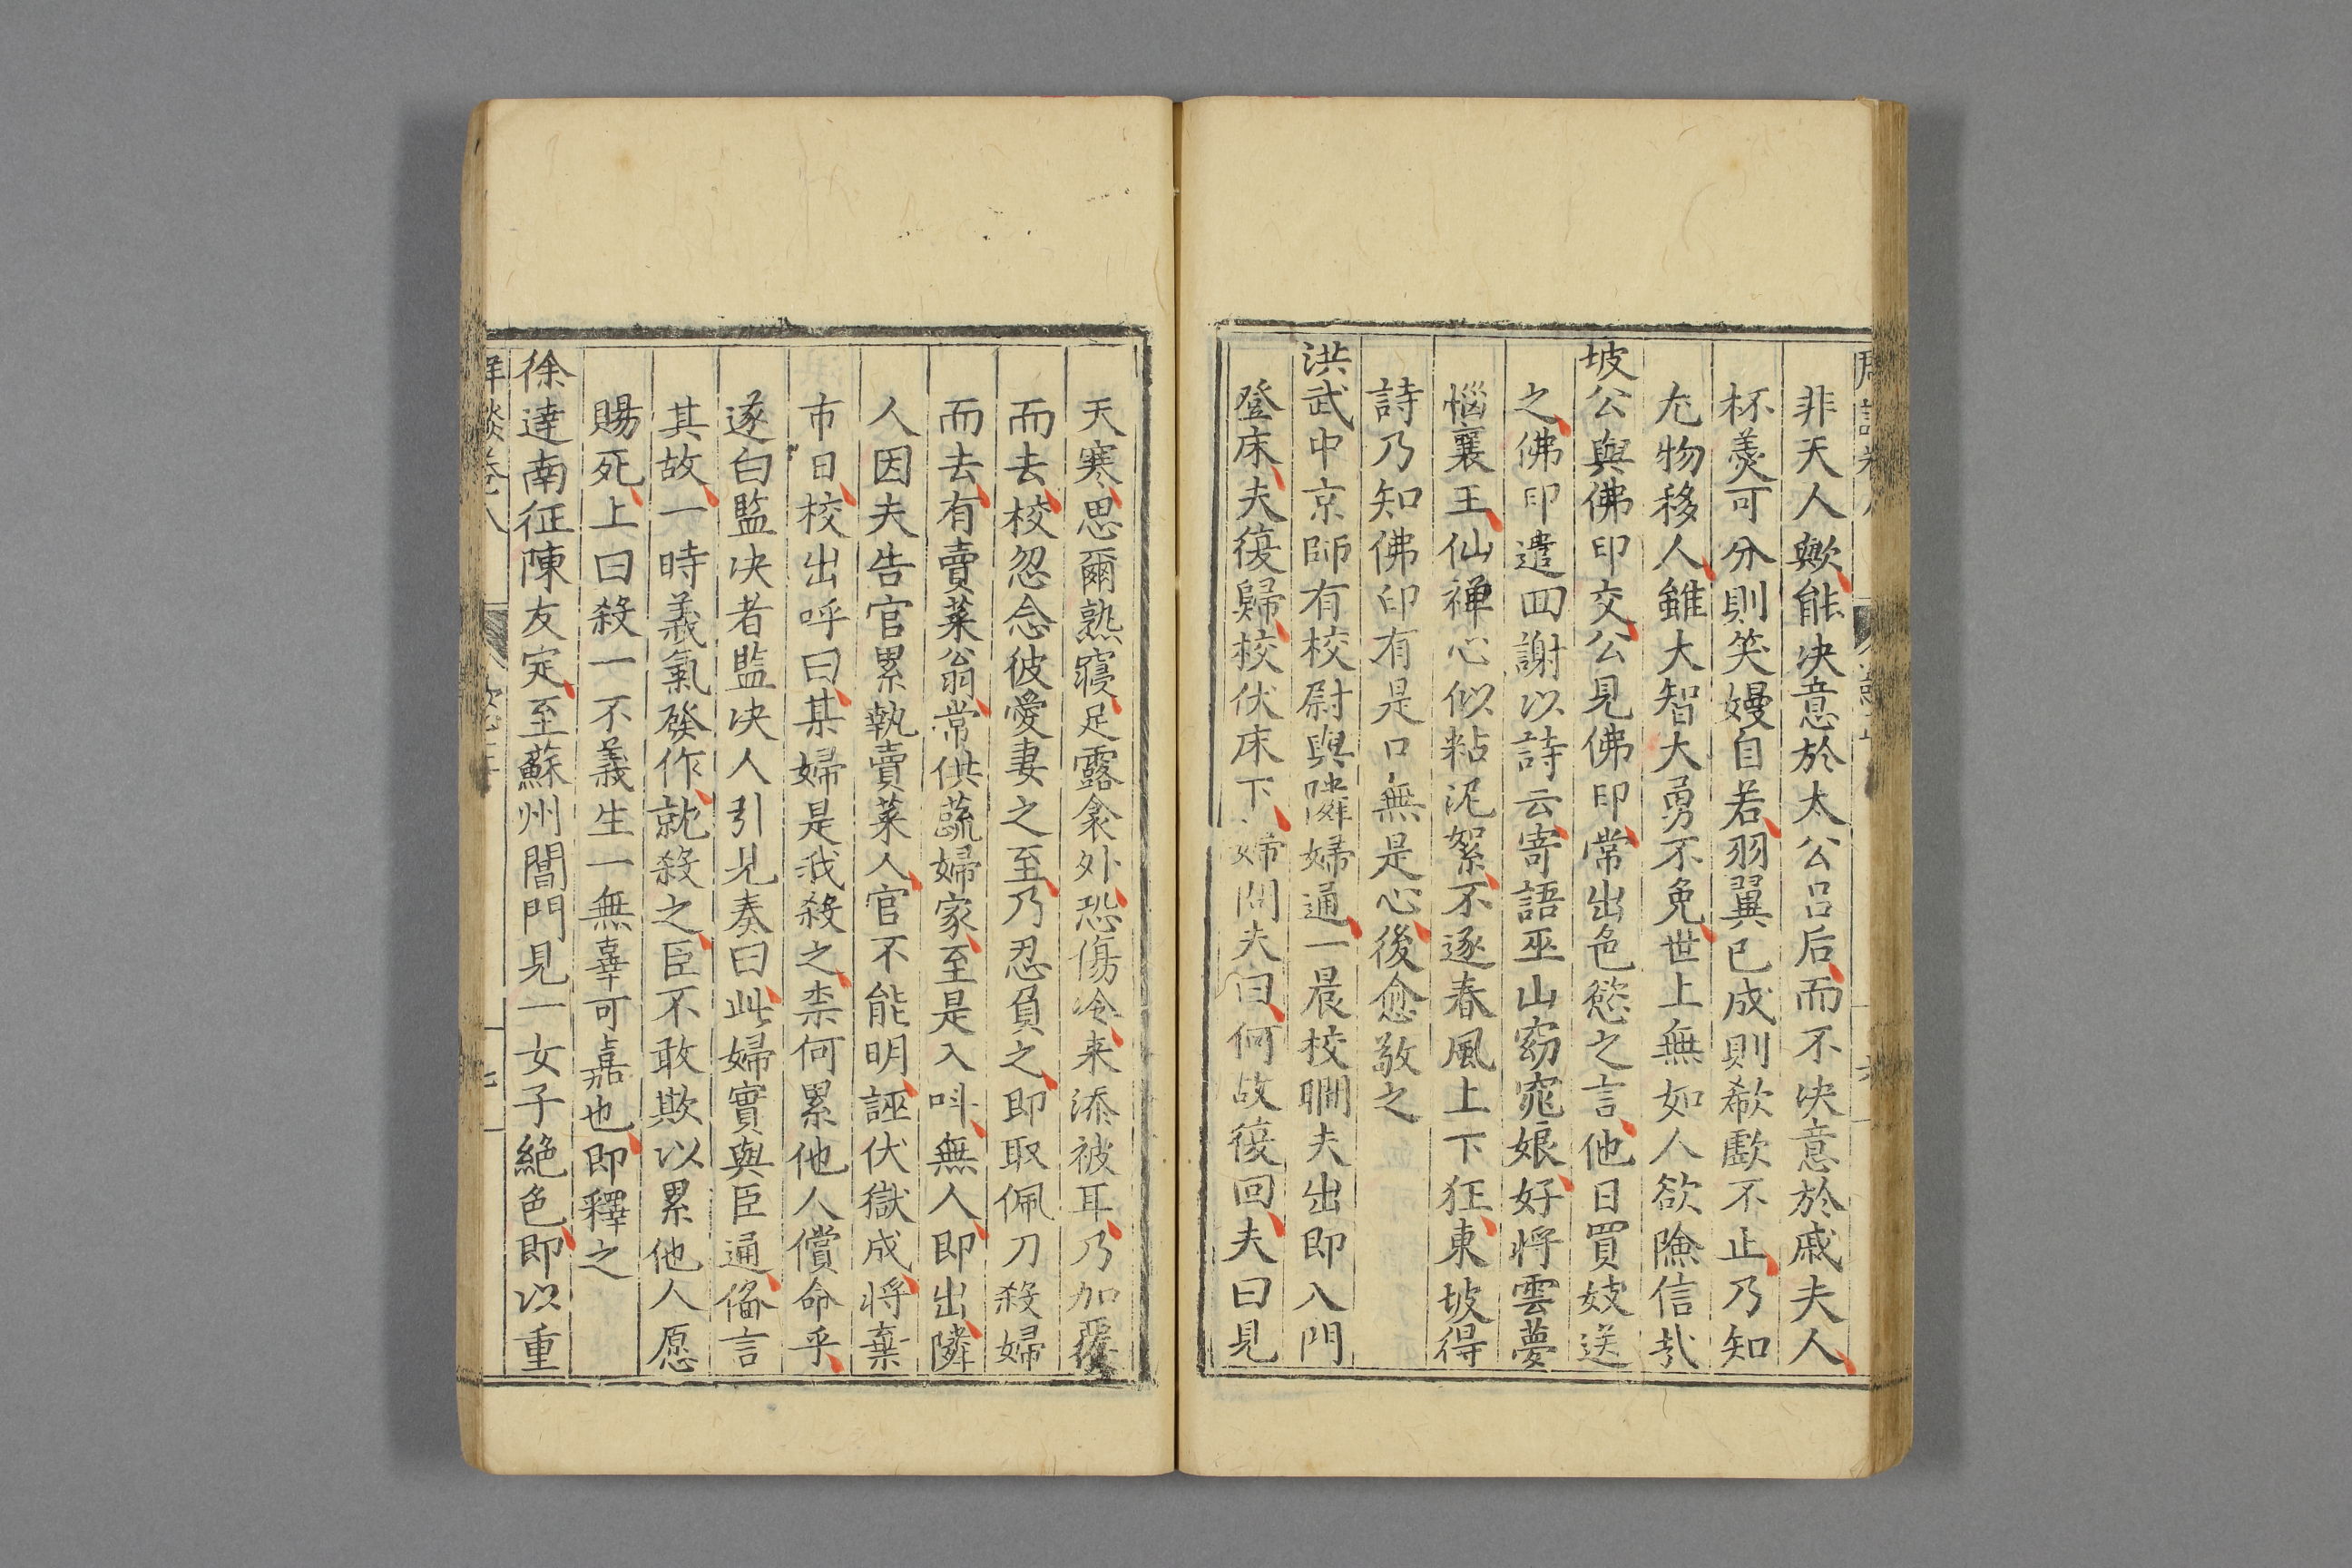 非天人歟能决意於太公呂后而不决意於戚夫人
杯羹可分則笑嫚自若羽翼已成則欷歔不止乃知
尤物移人雖大智大勇不免世上無如人欲險信哉
坡公與佛印交公見佛印常出色慾之言他日買妓送
之佛印遣回謝以詩云寄語巫山窈窕娘好將雲夢
惱襄王仙禅心似粘泥絮不逐春風上下狂東坡得
詩乃知佛印有是口無是心後愈敬之
洪武中京師有校尉與隣婦通一晨校瞯夫出即入門
登床夫復歸校伏床下婦問夫曰何故復回夫曰見
天寒思爾熟寢足露衾外恐傷冷来添被耳乃加覆
而去校忽念彼愛妻之至乃忍負之即取佩刀殺婦
而去有賣菜翁常供蔬婦家至是入叫無人即出隣
人因夫告官累執賣菜人官不能明誣伏獄成将棄
市日校出呼曰某婦是我殺之柰何累他人償命乎
遂白監决者監决人引見奏曰此婦實與臣通俻言
其故一時義氣發作就殺之臣不敢欺以累他人愿
賜死上曰殺一不義生一無辜可嘉也即釋之
徐達南征陳友定至蘇州閶門見一女子絶色即以重